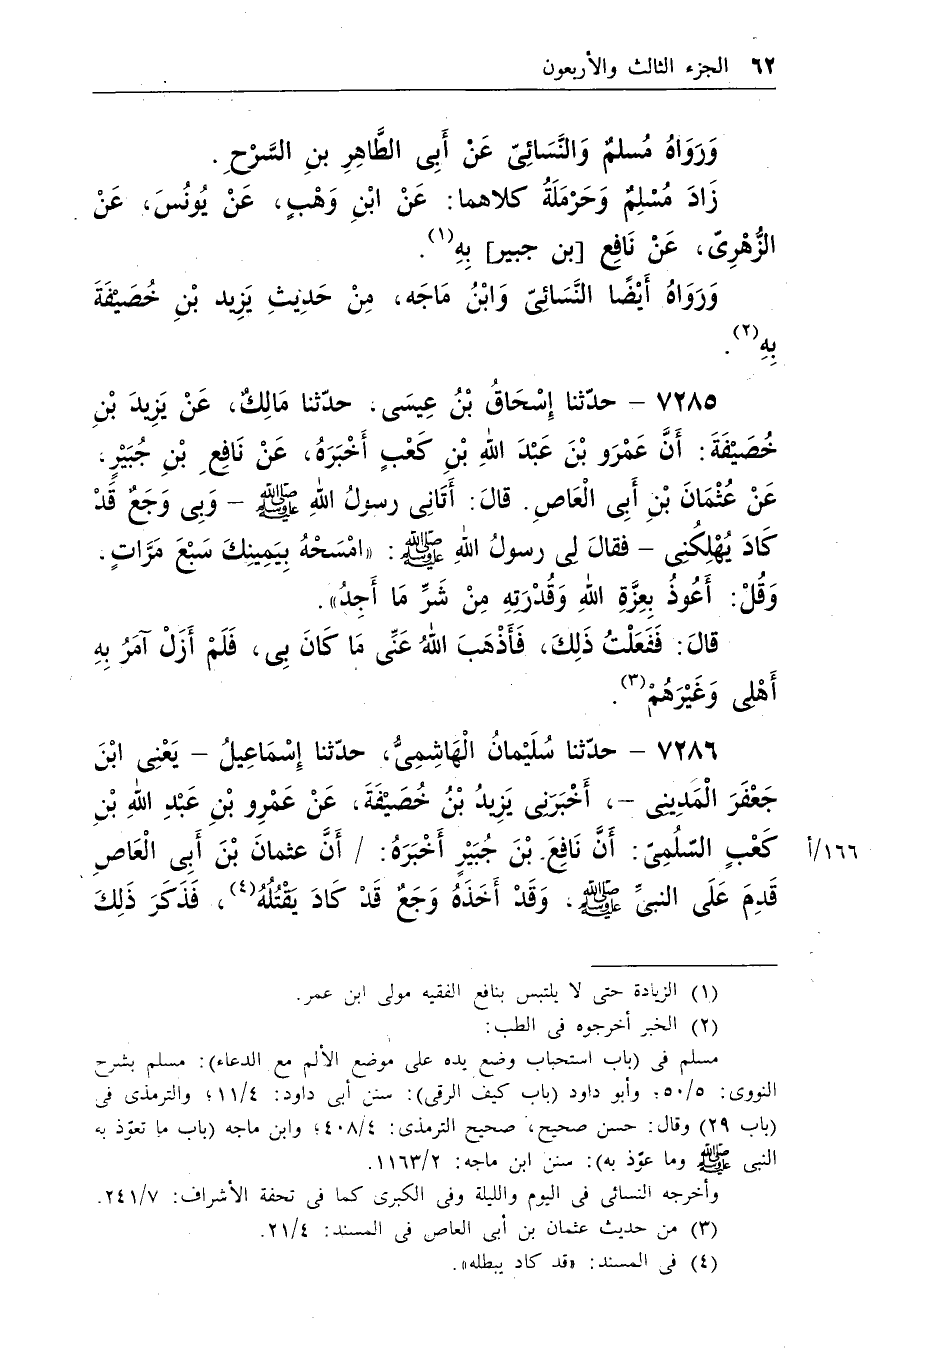 ٦٢ الجزء الثالث والأربعون
وَرَوَاهُ مُسلمٌ وَالنَّسَائِىّ عَنْ أَبِى الطَّاهِرِ بنِ السَّرْحِ .
زَادَ مُسْلِمٌ وَحَرْمَلَةُ كلاهما: عَنْ ابْنِ وَهْبٍ، عَنْ يُونُسَ، عَنْ
الزُّهْرِىّ، عَنْ نَافِعِ [بن جبير] بِهِ(١).
وَرَوَاهُ أَيْضًا النَّسَائِىّ وَابْنُ مَاجَه، مِنْ حَدِيثِ يَزِيد بْنِ خُصَيْفَةَ
بِهِ(٢).
٧٢٨٥ – حدّثنا إِسْحَاقُ بْنُ عِيسَى، حدّثنا مَالِكٌ، عَنْ يَزِيدَ بْنِ
خُصَيْفَةَ: أَنَّ عَمْرَو بْنَ عَبْدَ اللهِ بْنِ كَعْبٍ أَخْبَرَهُ، عَنْ نَافِعِ بْنِ جُبَيْرٍ،
عَنْ عُثْمَانَ بْنِ أَبِى الْعَاصِ. قالَ: أَتَانِى رسولُ اللهِ ﷺ – وَبِى وَجَعٌ قَدْ
كَادَ يُهْلِكُنِى – فقالَ لِى رسولُ اللهِ ﷺ: «امْسَحْهُ بِيَمِينِكَ سَبْعَ مَرَّاتٍ،
وَقُلْ: أَعُوذُ بِعِزَّةِ اللهِ وَقُدْرَتِهِ مِنْ شَرِّ مَا أَجِدُ».
قالَ: فَفَعَلْتُ ذَلِكَ، فَأَذْهَبَ اللهُ عَنِّى مَا كَانَ بِى، فَلَمْ أَزَلْ آمَرُ بِهِ
أَهْلِى وَغَيْرَهُمْ(٣).
٧٢٨٦ – حدّثنا سُلَيْمانُ الْهَاشِمِىُّ، حدّثنا إِسْمَاعِيلُ – يَعْنِى ابْنَ
جَعْفَرَ الْمَدِينِى –، أَخْبَرَنِى يَزِيدُ بْنُ خُصَيْفَةَ، عَنْ عَمْرِو بْنِ عَبْدِ اللهِ بْنِ
كَعْبٍ السّلُمِىّ: أَنَّ نَافِعَ بْنَ جُبَيْرٍ أَخْبَرَهُ: / أَنَّ عثمانَ بْنَ أَبِى الْعَاصِ ١٦٦/أ
قَدِمَ عَلَى النبىِّ ﷺ، وَقَدْ أَخَذَهُ وَجَعٌ قَدْ كَادَ يَقْتُلُهُ(٤)، فَذَكَرَ ذَلِكَ
(١) الزيادة حتى لا يلتبس بنافع الفقيه مولى ابن عمر.
(٢) الخبر أخرجوه فى الطب:
مسلم فى (باب استحباب وضع يده على موضع الألم مع الدعاء): مسلم بشرح
النووى: ٥٠/٥؛ وأبو داود (باب كيف الرقى): سنن أبى داود: ١١/٤؛ والترمذى فى
(باب ٢٩) وقال: حسن صحيح، صحيح الترمذى: ٤٠٨/٤؛ وابن ماجه (باب ما تعوّذ به
النبى ﷺ وما عوّذ به): سنن ابن ماجه: ١١٦٣/٢.
وأخرجه النسائى فى اليوم والليلة وفى الكبرى كما فى تحفة الأشراف: ٢٤١/٧.
(٣) من حديث عثمان بن أبى العاص فى المسند: ٢١/٤.
(٤) فى المسند: «قد كاد يبطله».